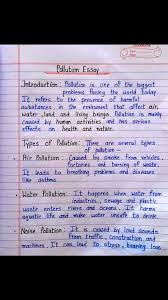 Pollution Essay
Introduction: Pollution is one of the biggest
problems facing the world today.
It refers to the presence of harmful
substances in the environment that affect air
water, land and living beings. Pollution is mainly
caused by human activities and has serious
effects on health and nature.
Types of Pollution: There are several types
of pollution
• Air Pollution: Caused by smoke from vehicles,
factories and burning of waste.
It leads to breathing problems and diseases
like asthma.
• Water Pollution: It happens when waste from
industries, sewage and plastic
waste enters rivers and oceans. It harms
aquatic life and makes water unsafe to drink.
• Noise Pollution: It is caused by loud sounds
from traffic, construction and
machines. It can lead to stress, hearing loss